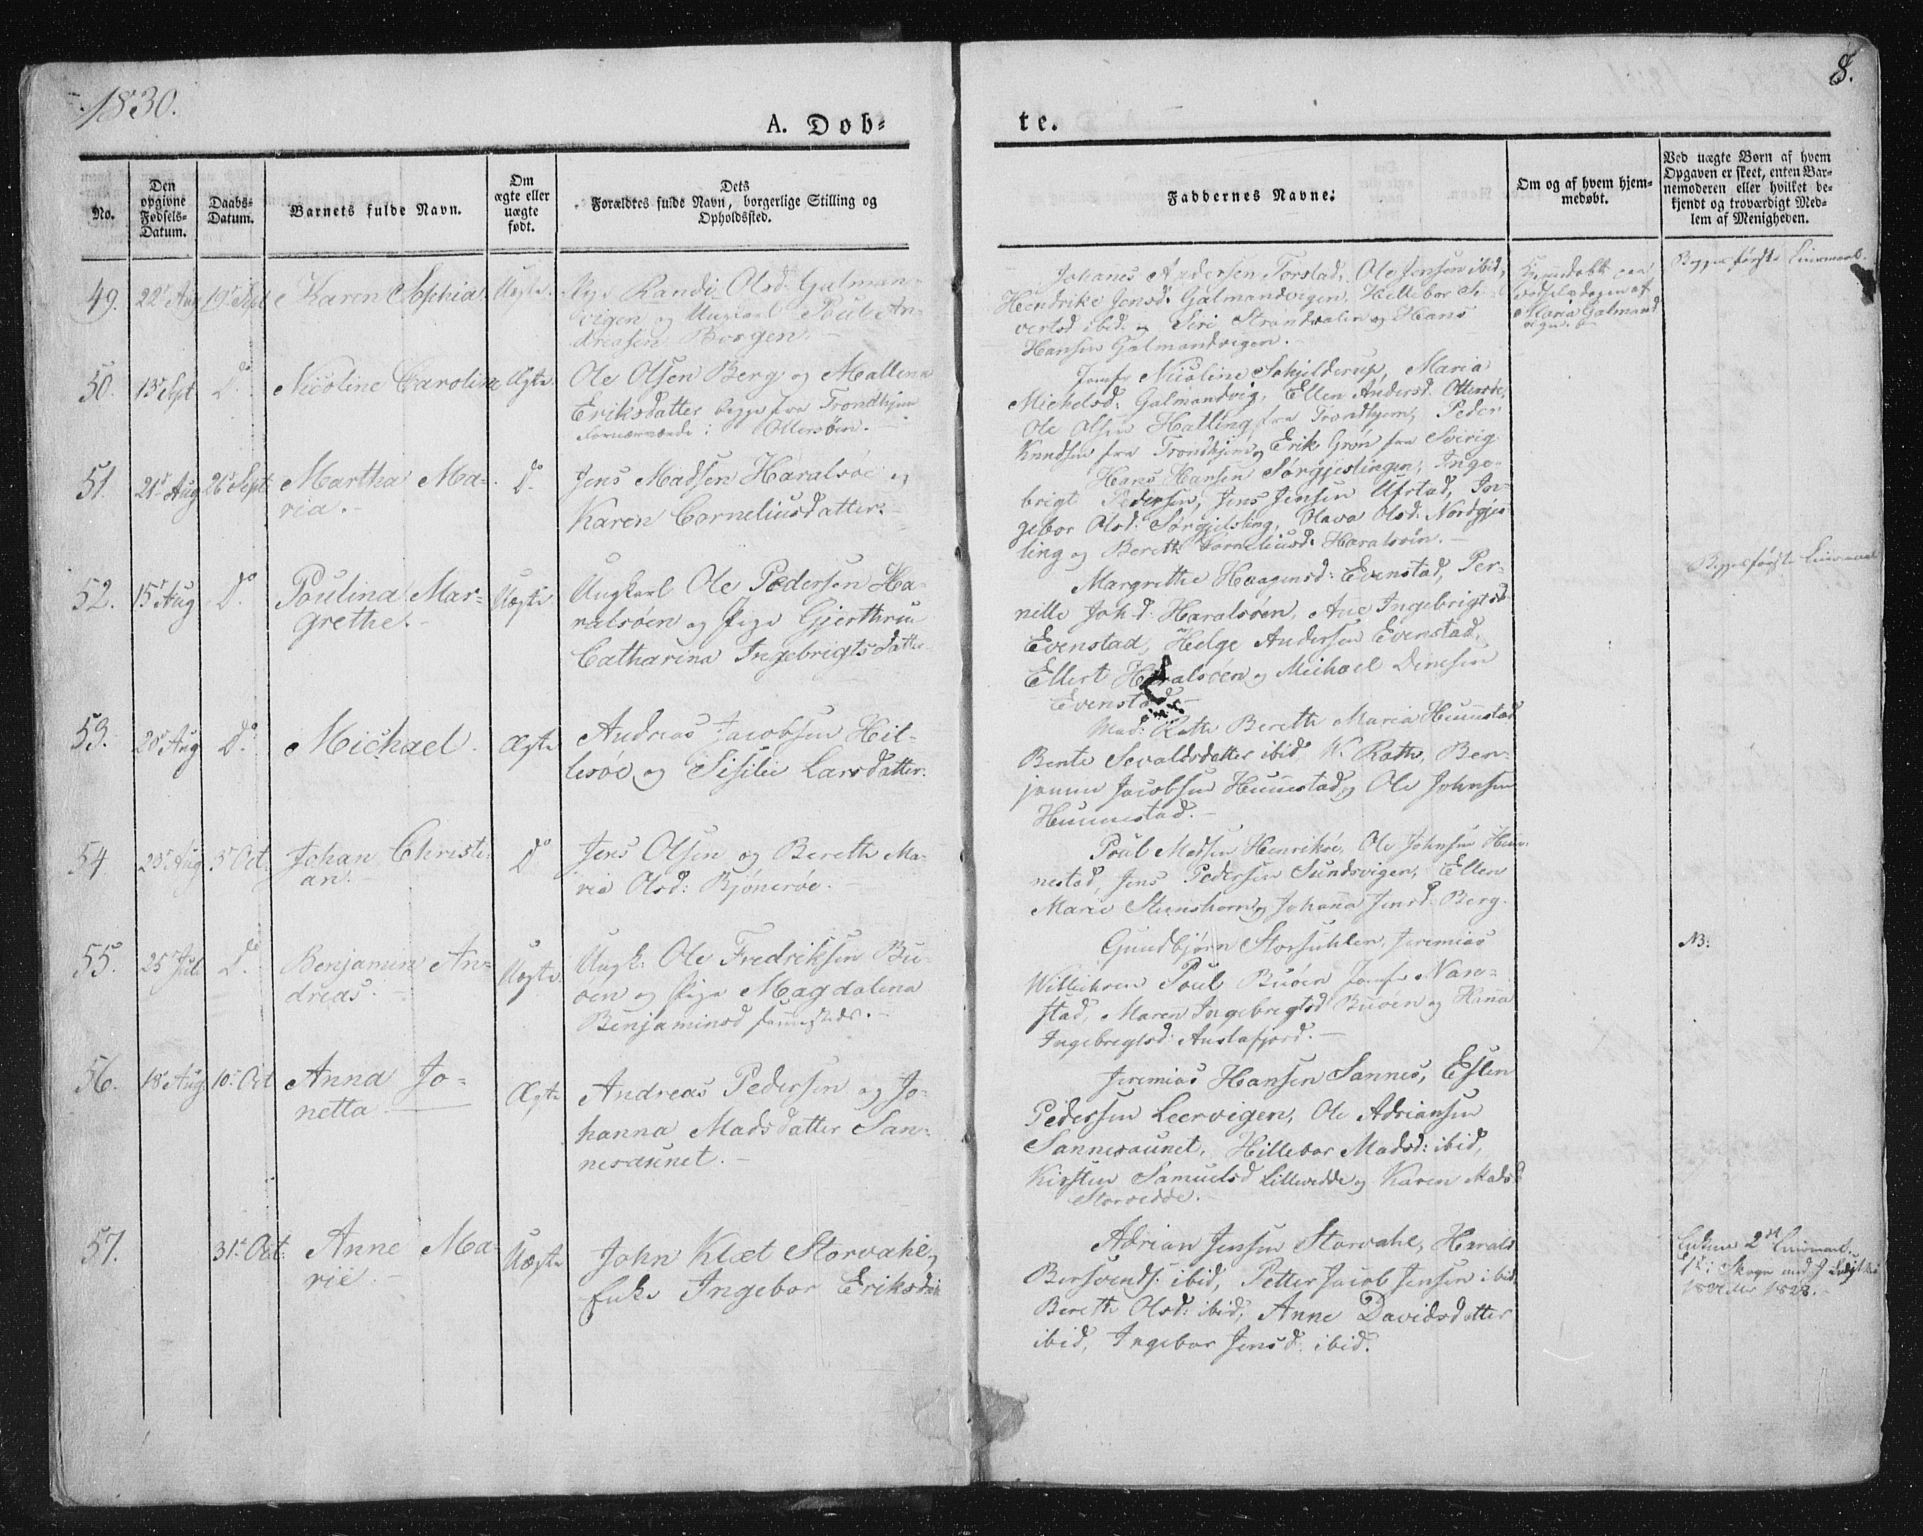 1830.
8.
A. Døb-
te.
No.
Den
opgivne
Fødsels-
Datum.
Daabs-
Datum.
Barnets fulde Navn.
Om
ægte eller
uægte
født.
Dets
Forældres fulde Navn, borgerlige Stilling og
Opholdsted.
Faddernes Navne:
Om og af hvem hjem-
medøbt.
Ved uægte Børn af hvem
Opgaven er skeet, enten Bar-
nemoderen eller hvilket be-
kjendt og troværdigt Med-
lem af Menigheden.
49. 22 Aug 19 Sept Karen Sophia Uægte. Pige Randi Olsd: Galman-
vigen og Ungkarl Poul An-
dreasen Borgen.
Johanes Andersen Torstad, Ole Jensen ibid,
Hendrike Jensd: Galmandvigen, Hillebor Si-
vertsd ibid og Siri Strandvalen og Hans
Hansen Galmandvigen.
Hjemdøbt paa
Fødselsdagen af
Maria Galmand
vigen.
Begges første Leiermaal.
50. 13 Sept Do. Nicoline Carolina Ægte. Ole Olsen Berg og Mallena
Eriksdatter begge fra Trondhjem
Fornærværende i Ottersøen.
Jomfr Nicoline Schjilderup, Maria
Michelsd: Galmandvig, Ellen Andersd. Ottersøe,
Ole Olsen Halling fra Trondhjem, Peder
Knudsen fra Trondhjem og Erik Grøn fra Sverig
51. 21 Aug 26 Sept Martha Ma-
ria. Do. Jens Madsen Haralsøe og
Karen Corneliusdatter.
Hans Hansen Sørgjeslingen, Inge-
brigt Pedersen, Jens Jensen Ufstad, In-
gebor Olsd: Sørgjesling, Olava Olsd: Nordgjes
ling og Bereth Corneliusd: Haralsøen.
52. 15 Aug Do. Paulina Mar-
grethe. Uægte Ungkarl Ole Pedersen Ha-
ralsøen og Pige Gjerthrui
Catharina Ingebrigtsdatter
Margrethe Haagensd: Evenstad, Per-
nille Johd: Haralsøen, Ane Ingebrigtsd
Evenstad, Helge Andersen Evenstad,
Ellert Haralsøen og Michael Dinesen
Evenstad.
Begges første Leiermaal
53. 20 Aug Do. Michael. Ægte Andreas Jacobsen Hil-
lesøe og Sisilie Larsdatter.
Mad: Rath Bereth Maria Hunnestad
Bente Sevaldsdatter ibid W. Rath, Ben-
jamin Jacobsen Hunnestad og Ole Johnsen
Hunnestad.
54 23 Aug 3 Oct. Johan Christi-
an. Do Jens Olsen og Bereth Ma-
ria Olsd: Bjønerøe.
Poul Madsen Henriksøe, Ole Johnsen Hun-
nestad, Jens Pedersen Sundsvigen, Ellen
Marie Steenshorn og Johana Jensd. Berg.
55. 25 Jul Do. Benjamin An-
dreas. Uægte Ungk: Ole Fredriksen Bu-
øen og Pige Magdalena
Benjaminsd sammesteds.
Gundbjørn Storsuhlen, Jeremias
Poul Buøen Jomfr Nare-
stad, Maren Ingebregtsd Buøen og Hana
Ingebregtsd: Austafjord.
NB:
56. 18 Aug 10 Oct Anna Jo-
netta. Ægte Andreas Pedersen og Jo-
hanna Madsdatter San-
nesaunet.
Jeremias Hansen Sannes, Eslen
Pedersen Leervigen, Ole Adriansen
Sannesaunet, Hillebor Madsd: ibid,
Kirstin Samuelsd Lillevedde og Karen Madsd
Storvedde.
57. 31 Oct. Anne Ma-
rie. Uægte John Klæt Storvahl og
Enke Ingebor Eriksdatt
Adrian Jensen Storvahl, Harald
Bersvends: ibid, Petter Jacob Jensen ibid.
Bereth Olsd: ibid, Anne Davidsdatter
ibid, Ingebor Jensd. ibid.
Enkens 2det Leiermaal.